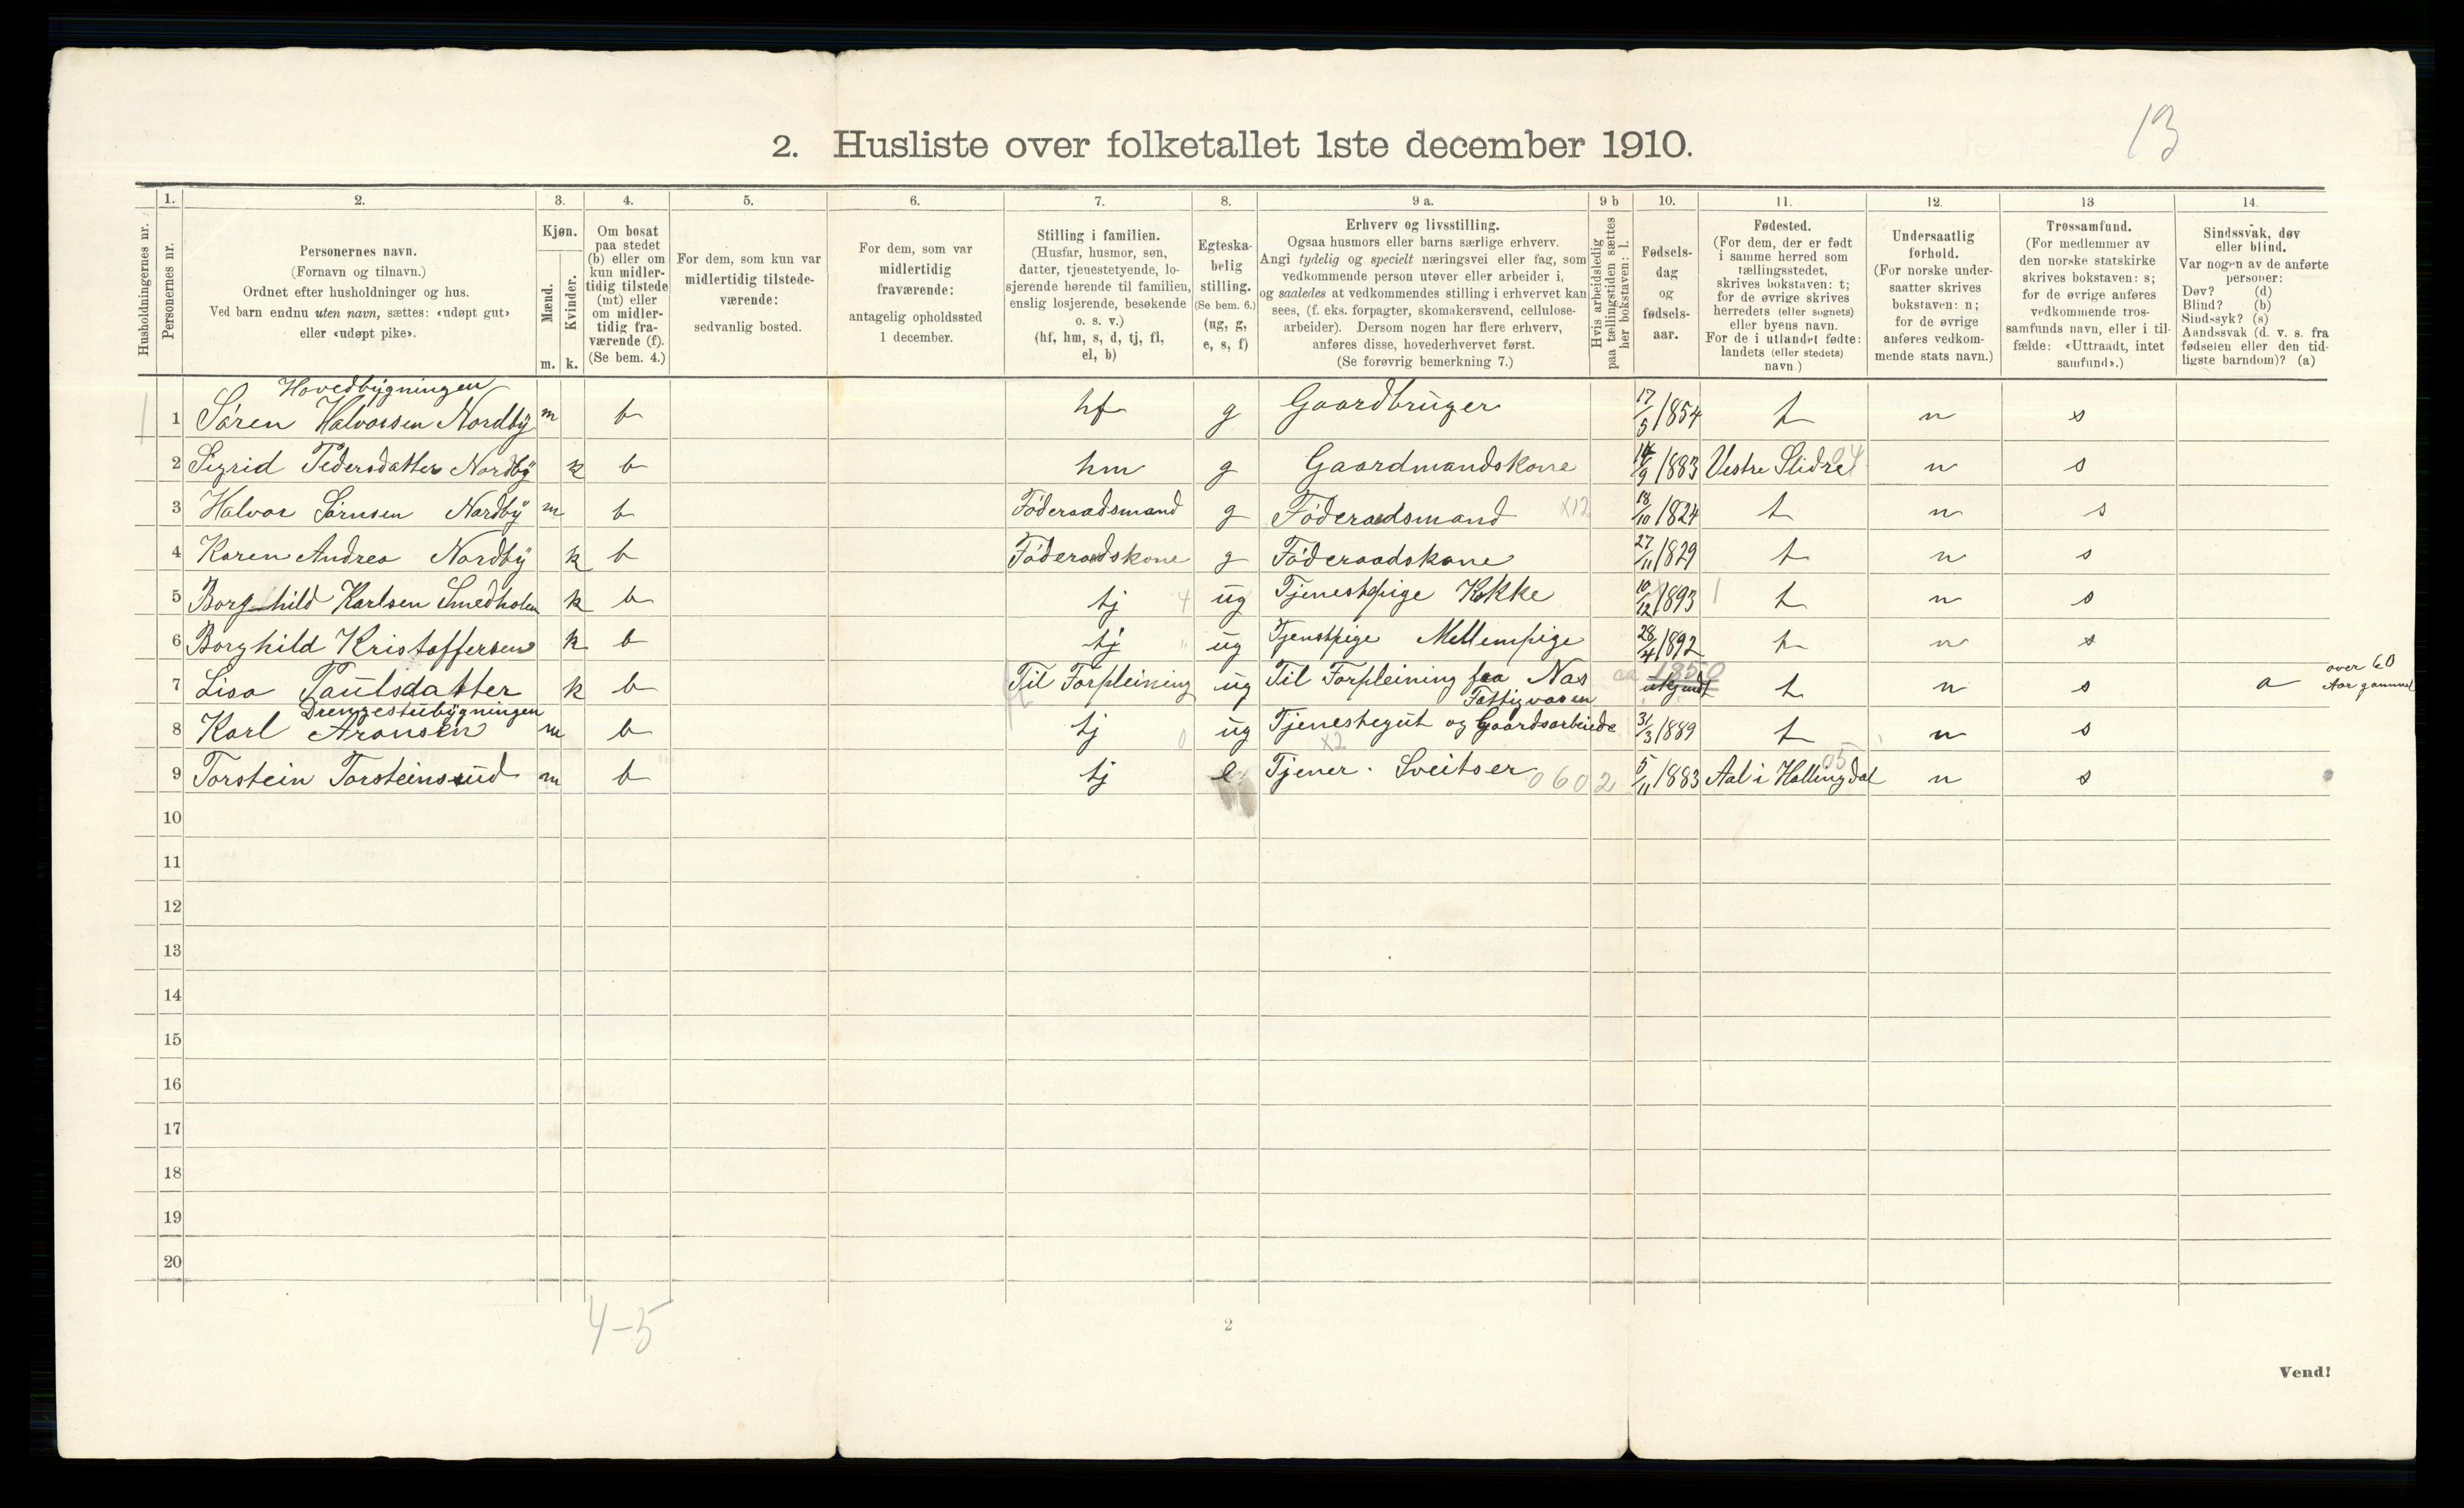 13
2. Husliste over folketallet 1ste december 1910.
Husholdningernes nr.
1.
Personernes nr.
2.
Personernes navn.
(Fornavn og tilnavn.)
Ordnet efter husholdninger og hus.
Ved barn endnu uten navn, sættes: «udøpt gut»
eller «udøpt pike».
3.
Kjøn.
Mænd.
Kvinder.
m. k.
4.
Om bosat
paa stedet
(b) eller om
kun midler-
tidig tilstede
(mt) eller
om midler-
tidig fra-
værende (f).
(Se bem. 4.)
5.
For dem, som kun var
midlertidig tilstede-
værende:
sedvanlig bosted.
6.
For dem, som var
midlertidig
fraværende:
antagelig opholdssted
1 december.
7.
Stilling i familien.
(Husfar, husmor, søn,
datter, tjenestetyende, lo-
sjerende hørende til familien,
enslig losjerende, besøkende
o. s. v.)
(hf, hm, s, d, tj, fl,
el, b)
8.
Egteska-
belig
stilling.
(Se bem. 6.)
(ug, g,
e, s, f)
9 a.
Erhverv og livsstilling.
Ogsaa husmors eller barns særlige erhverv.
Angi tydelig og specielt næringsvei eller fag, som
vedkommende person utøver eller arbeider i,
og saaledes at vedkommendes stilling i erhvervet kan
sees, (f. eks. forpagter, skomakersvend, cellulose-
arbeider). Dersom nogen har flere erhverv,
anføres disse, hovederhvervet først.
(Se forøvrig bemerkning 7.)
9 b
Hvis arbeidsledig
paa tællingstiden sættes
her bokstaven: l.
10.
Fødsels-
dag
og
fødsels-
aar.
11.
Fødested.
(For dem, der er født
i samme herred som
tællingsstedet,
skrives bokstaven: t;
for de øvrige skrives
herredets (eller sognets)
eller byens navn.
For de i utlandet fødte:
landets (eller stedets)
navn.)
12.
Undersaatlig
forhold.
(For norske under-
saatter skrives
bokstaven: n;
for de øvrige
anføres vedkom-
mende stats navn.)
13
Trossamfund.
(For medlemmer av
den norske statskirke
skrives bokstaven: s;
for de øvrige anføres
vedkommende tros-
samfunds navn, eller i til-
fælde: «Uttraadt, intet
samfund».)
14.
Sindssvak, døv
eller blind.
Var nogen av de anførte
personer:
Døv? (d)
Blind? (b)
Sindssyk? (s)
Aandssvak (d. v. s. fra
fødselen eller den tid-
ligste barndom)? (a)
Hovedbygningen
1 1 Søren Halvorsen Nordby m b hf g Gaardbruger 17/5 1854 t n s
2 Sigrid Pedersdatter Nordby k b hm g Gaardmandskone 14/9 1883 Vestre Slidre 04 n s
3 Halvor Sørnsen Nordby m b Föderaadsmand g Föderaadsmand x12 18/10 1824 t n s
4 Karen Andrea Nordby k b Föderaadskone g Föderaadskone 27/11 1829 t n s
5 Borghild Karlsen Smedholen k b tj 4 ug Tjenestpige Kokke 10/12 1893 1 t n s
6 Borghild Kristoffersen k b tj " ug Tjenstpige Mellempige 28/4 1892 t n s
7 Lisa Paulsdatter k b Til Forpleining ug Til Forpleining fra Nas Fattigvæsen ca 1850 ukjendt t n s a over 60 Aar gammel
Drengestubygningen
8 Karl Aronsen m b tj 0 ug Tjenestegut og Gaardsarbeide 31/3 1889 t n s
9 Torstein Torsteinsrud m b tj e. Tjener. Sveitser x2 0602 5/11 1883 Aal i Hallingdal 05 n s
10
11
12
13
14
15
16
17
18
19
20
4-5
2
Vend!